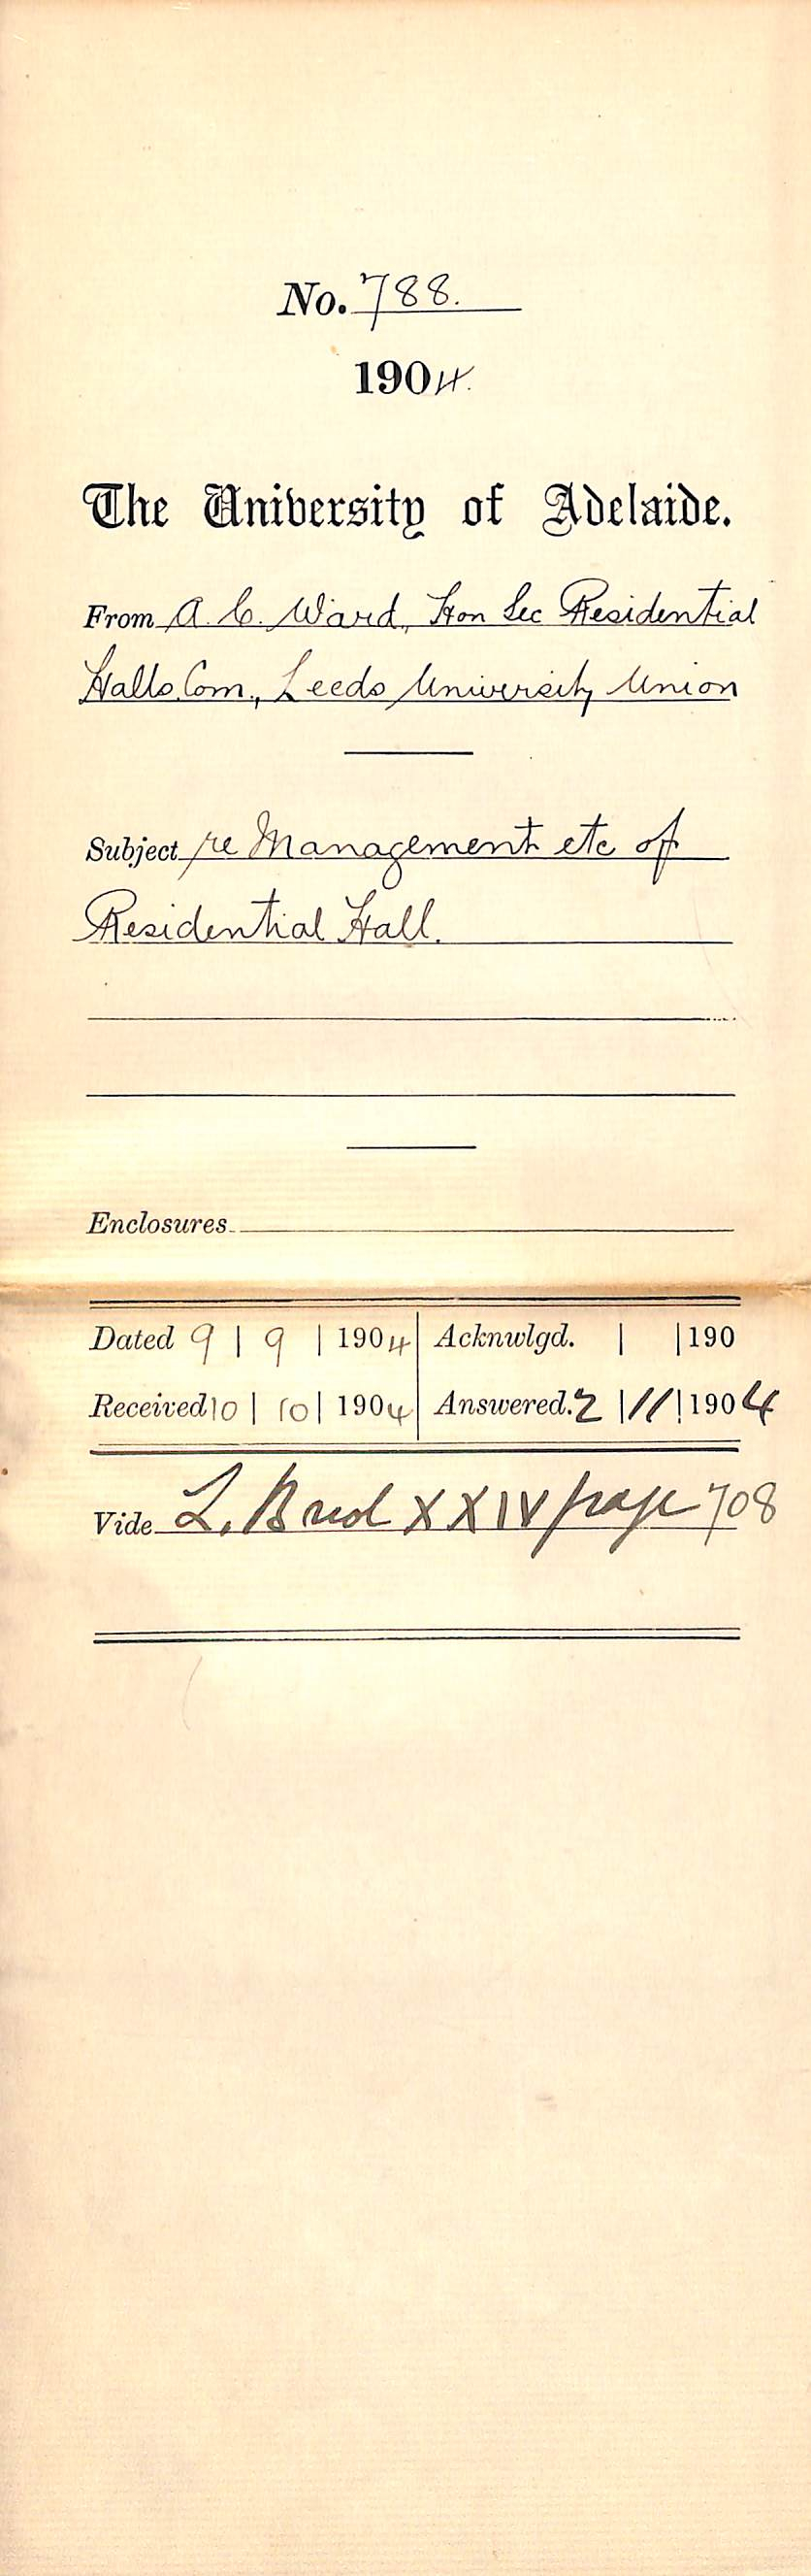 No. 788.
1904.
The University of Adelaide.
From A. C. Ward, Hon Sec Residential
Halls Com., Leeds University Union
Subject re Management etc of
Residential Hall.
Enclosures
Dated 9 | 9 | 1904 Acknwlgd. | | 190
Received 10 | 10 | 1904 Answered. 2 | 11 | 1904
Vide L. XXIV page 708